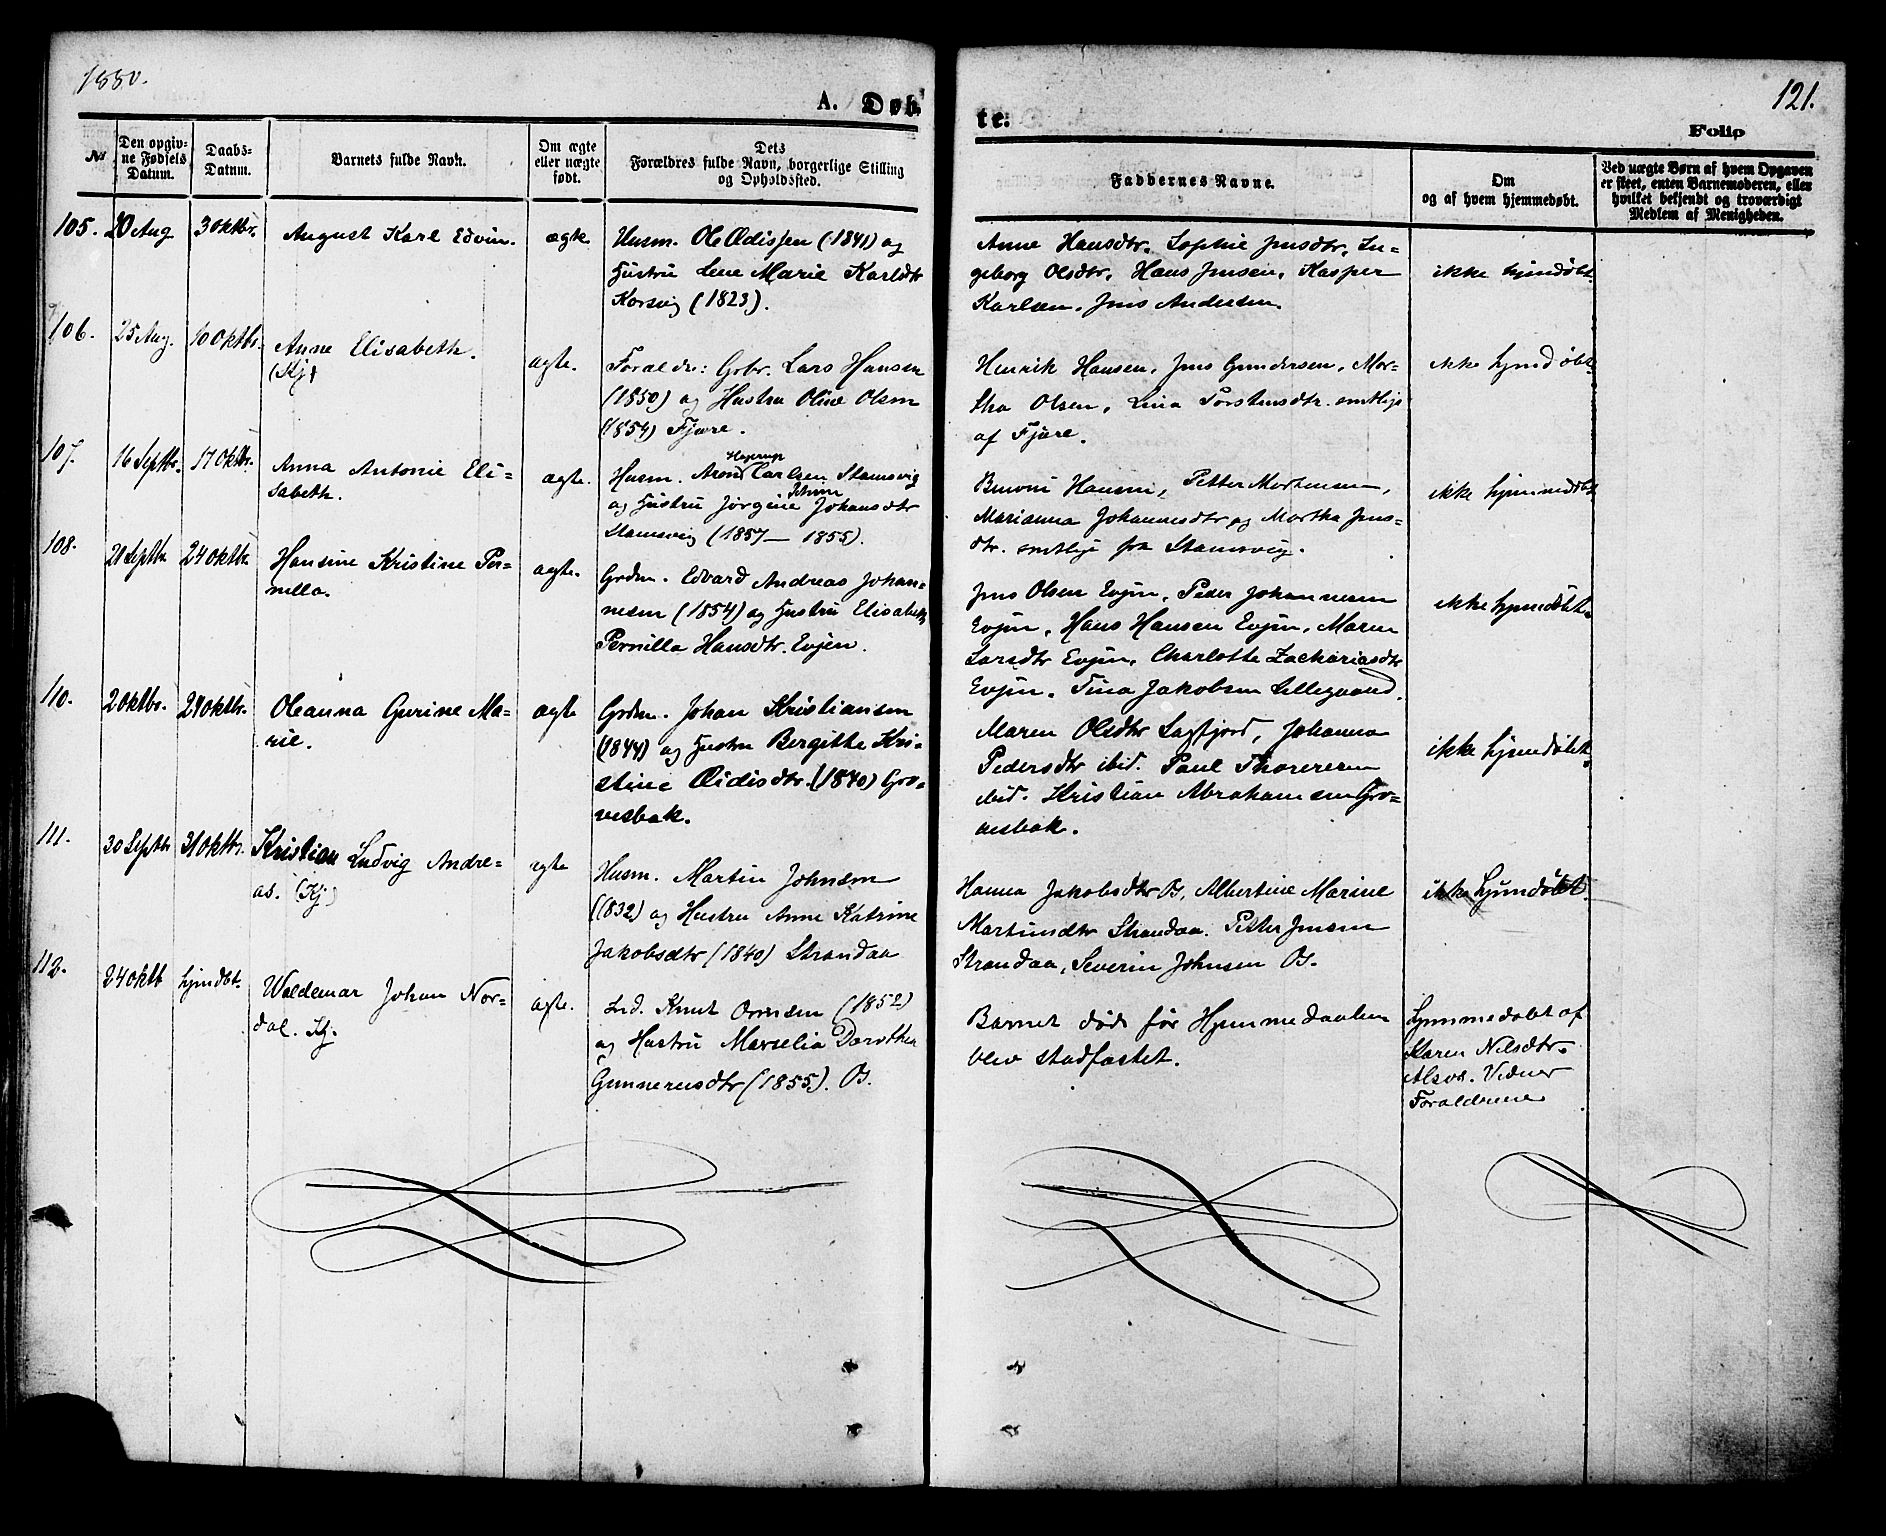 1880.
A. Døb
te:
121.
Folio
№
Den opgiv-
ne Fødsels
Datum.
Daabs-
Datum.
Barnets fulde Navn.
Om ægte
eller uægte
født.
Dets
Forældres fulde Navn, borgerlige Stilling
og Opholdssted.
Faddernes Navne.
Om
og af hvem hjemmedøbt.
Ved uægte Børn af hvem Opgaven
er skeet, enten Barnemoderen, eller
hvilket bekjendt og troværdigt
Medlem af Menigheden.
105. 20 Aug 3 Oktbr. August Karl Edvin. ægte
Husm. Ole Ædissen (1841) og
Hustru Lene Marie Karlsdtr
Korsvig (1823).
Anne Hansdtr, Sophie Jensdtr, In-
geborg Olsdtr, Hans Jensen, Kasper
Karlsen, Jens Andersen.
ikke hjemdøbt
106. 25 Aug. 10 Oktbr. Anne Elisabeth.
(Kj)
ægte.
Forældre: Grbr. Lars Hansen
(1850) og Hustru Oline Olsen
(1854) Fjære.
Henrik Hansen, Jens Gundersen, Mar-
tha Olsen, Lina Torstensdtr. samtlige
af Fjære.
ikke hjemdøbt
107. 16 Septbr. 17 Oktbr. Anna Antonie Eli-
sabeth.
ægte.
Husm. Aron Carlsen Stamsvig
og Hustru Jørgine Johansdtr
Stamsvig (1857 — 1855).
Benoni Hansen, Petter Mortensen,
Marianna Johannesdtr og Martha Jens-
dtr. samtlige fra Stamsvig.
ikke hjemmedøbt
108. 21 Septbr 24 Oktbr. Hansine Kristine Per-
nilla.
ægte.
Grdm. Edvard Andreas Johan-
nesen (1854) og Hustru Elisabeth
Pernilla Hansdtr. Evjen.
Jens Olsen Evjen, Peder Johannesen
Evjen, Hans Hansen Evjen, Maren
Larsdtr Evjen, Charlotte Zachariasdtr
Evjen. Tina Jakobsen Lillegaard.
ikke hjemdøbt
110. 2 Oktbr. 24 Oktbr. Oleanna Gurine Ma-
rie.
ægte
Grdm. Johan Kristiansen
(1844) og Hustru Bergitte Kri-
stine Ædisdtr. (1840) Gro-
vesbak.
Maren Olsdtr Sagfjord, Johanna
Pedersdtr ibid. Paul Thorersen
ibid. Kristian Abrahamsen Gro-
vesbak.
ikke hjemdøbt
111. 30 Septbr 31 Oktbr. Kristian Ludvig Andre-
as. (Kj)
ægte
Husm. Martin Johnsen
(1832) og Hustru Anne Katrine
Jakobsdtr (1840) Strandaa
Hanna Jakobsdtr Os, Albertine Marine
Martinsdtr Strandaa. Petter Jensen
Strandaa, Severin Johnsen Os.
ikke hjemdøbt
112. 24 Oktb hjemdøbt. Waldemar Johan Nor-
dal. Kj.
ægte.
Ind. Knut Ormsen (1852)
og Hustru Marselia Dorothea
Gunnerusdtr (1855). Os.
Barnet døde før Hjemmedaaben
blev stadfæstet.
hjemmedøbt af
Karen Nilsdtr.
Alsos. Vidner
Forældrene